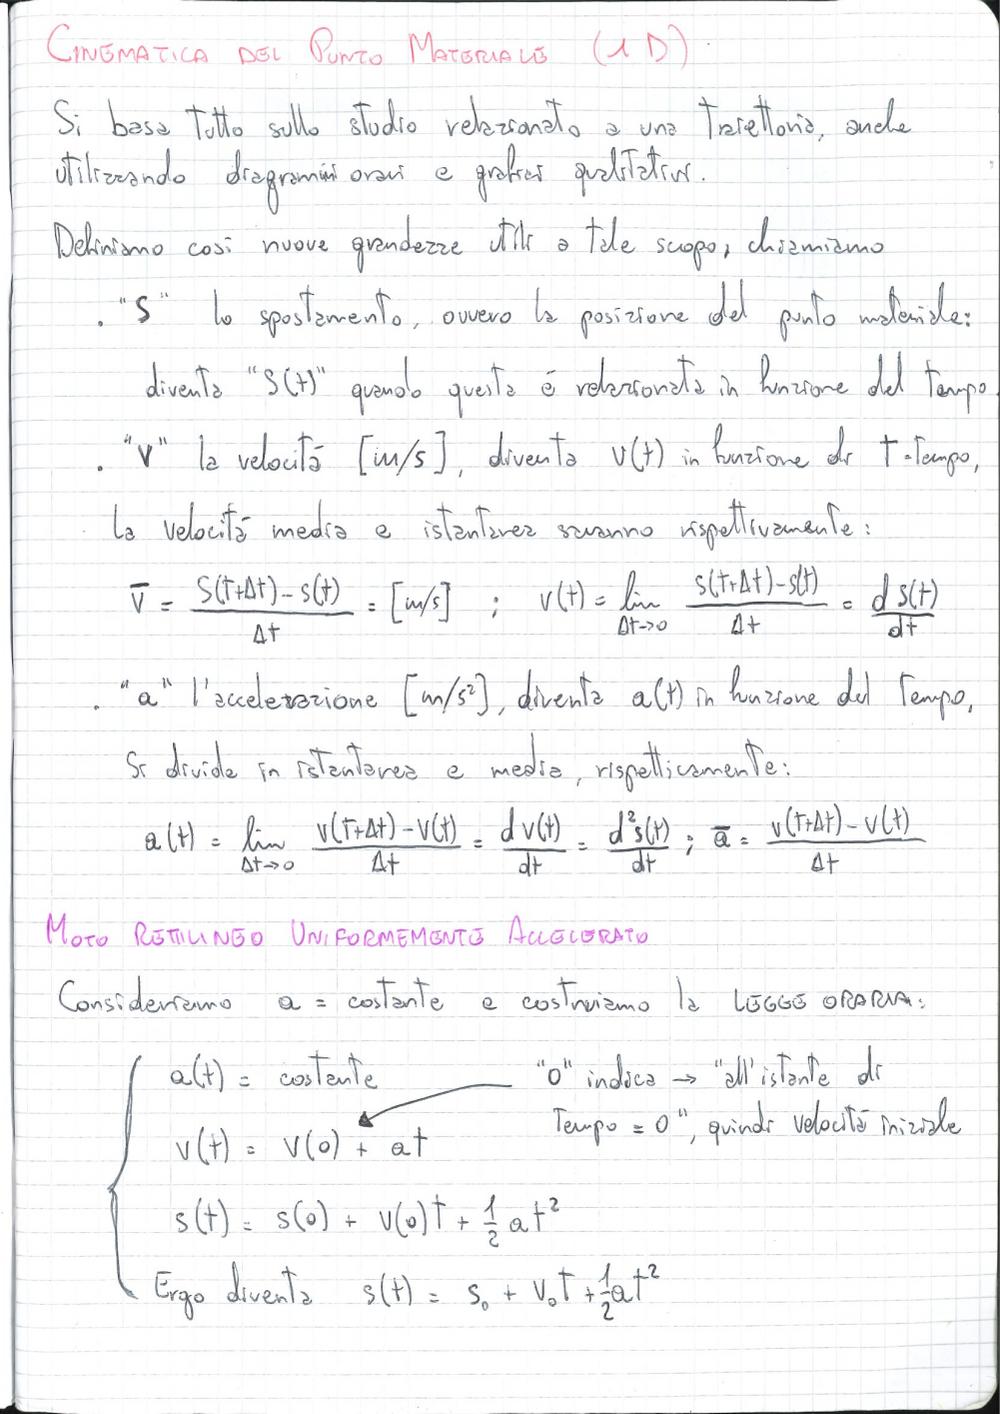 CINEMATICA DEL PUNTO MATERIALE (1D)
Si basa tutto sullo studio relazionato a una traiettoria, anche
utilizzando diagrammi orari e grafici qualitativi.
Definiamo così nuove grandezze utili a tale scopo, chiamiamo
. "S" lo spostamento, ovvero la posizione del punto materiale:
diventa "S(t)" quando questa è relazionata in funzione del tempo.
. "V" la velocità [m/s], diventa v(t) in funzione di t=tempo,
la velocità media e istantanea saranno rispettivamente:
v̄ = (S(t+Δt) - s(t))/Δt = [m/s] ; v(t) = lim Δt->0 (s(t+Δt) - s(t))/Δt = d s(t)/dt
. "a" l'accelerazione [m/s²], diventa a(t) in funzione del tempo,
Si divide in istantanea e media, rispettivamente:
a(t) = lim Δt->0 (v(t+Δt) - v(t))/Δt = d v(t)/dt = d²s(t)/dt ; ā = (v(t+Δt) - v(t))/Δt
MOTO RETTILINEO UNIFORMEMENTE ACCELERATO
Consideriamo a = costante e costruiamo la LEGGE ORARIA:
a(t) = costante "0" indica → "all'istante di
tempo = 0", quindi velocità iniziale
v(t) = v(0) + at
s(t) = s(0) + v(0)t + 1/2 at²
Ergo diventa s(t) = s₀ + v₀t + 1/2 at²